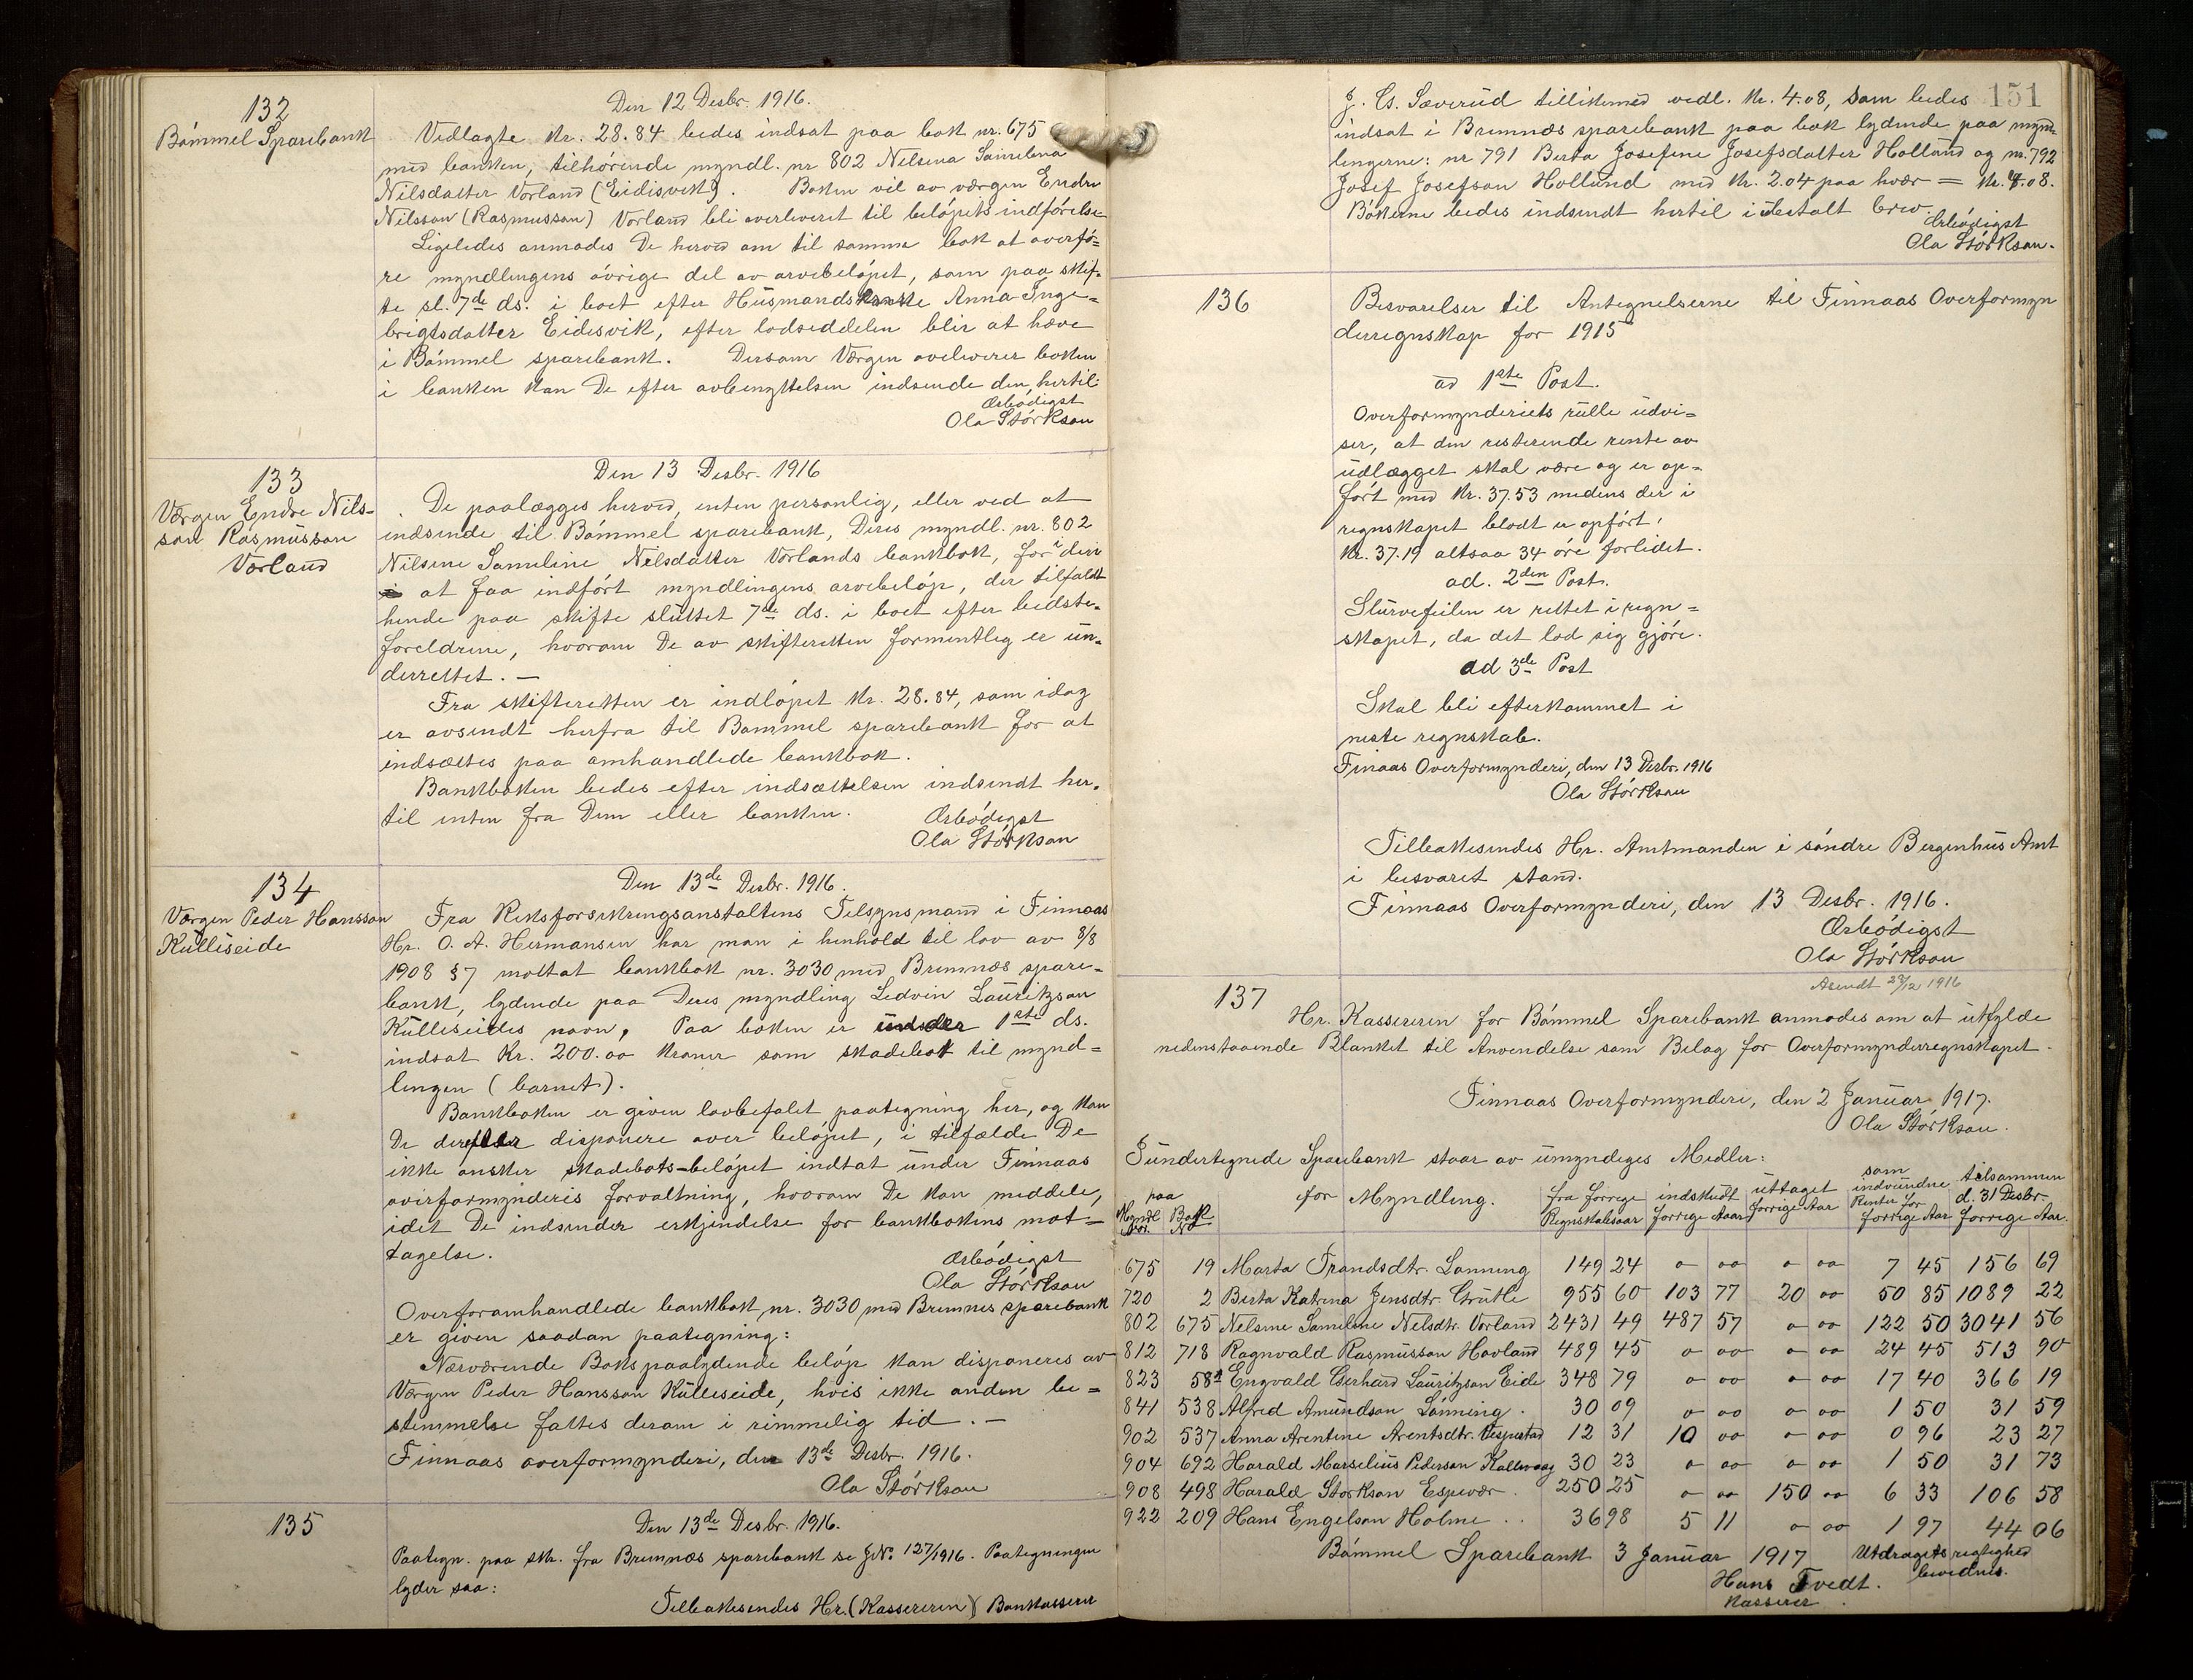 132
Bömmel Sparebank
Den 12 Desbr. 1916.
Vedlagte Kr. 28.84 bedes indsat paa bok nr. 675
med banken, tilhörende myndl. nr 802 Nelsina Samelena
Nilsdatter Vorland (Eidisvik). Boken vil av værgen Endre
Nilsson (Rasmusson) Vorland bli overleveret til belöpets indförelse
Ligeledes anmodes De herved om til samme bok at overfö=
re myndlingens övrige del av arvebelöpet, som paa skif-
te sl. 7de ds. i boet efter Husmandskone Anna Inge=
brigtsdatter Eidesvik, efter lodseddelen blir at hæve
i Bömmel sparebank. Dersom Værgen avleverer boken
i banken kan De efter avbenyttelsen indsende den hertil.
Ærbödigst
Ola Störkson
133
Værgen Endre Nils-
son Rasmusson
Vorland
Den 13 Desbr. 1916
De paalægges herved, enten personlig, eller ved at
indsende til Bömmel sparebank, Deres myndl. nr. 802
Nilsine Sameline Nelsdatter Vorlands bankbok, for i den
at faa indfört myndlingens arvebelöp, der tilfaldt
hende paa skifte sluttet 7de ds. i boet efter bedste-
foreldrene, hvorom De av skifteretten formentleg er un-
derrettet. —
Fra skifteretten er indlöpet Kr. 28.84, som idag
er avsendt herfra til Bömmel sparebank for at
indsættes paa omhandlede bankbok.
Bankboken bedes efter indsættelsen indsendt her-
til enten fra Dem eller banken.
Ærbödigst
Ola Störkson
134
Værgen Peder Hansson
Kulleseide
Den 13de Desbr. 1916.
Fra Riksforsikringsanstaltens Tilsynsmand i Finnaas
Hr. O. A. Hermansen har man i henhold til lov av 8/8
1908 § 7 mottat bankbok nr. 3030 med Bremnæs spare-
bank, lydende paa Deres myndling Ledvin Lauritzson
Kulleseides navn, Paa boken er under 1ste ds.
indsat Kr. 200.00 kroner som skadebot til mynd=
lingen (barnet).
Bankboken er given lovbefalet paategning her, og kan
De derefter disponere over belöpet, i tilfælde De
ikke önsker skadebots-belöpet indtat under Finnaas
overformynderis forvaltning, hvorom De kan meddele,
idet De indsender erkjendelse for bankbokens mot=
tagelse.
Ærbödigst
Ola Störkson
Overforomhandlede bankbok nr. 3030 med Bremnes sparebank
er given saadan paategning:
Nærværende Boks paalydende belöp kan disponeres av
Værgen Peder Hansson Kulleseide, hvis ikke anden be=
stemmelse fattes derom i rimmelig tid. —
Finnaas overformynderi, den 13de Desbr. 1916.
Ola Störkson
135
Den 13de Desbr. 1916.
Paategn. paa skr. fra Bremnæs sparebank se J.No. 127/1916. Paategningen
lyder saa:
Tilbakesendes Hr. (Kassereren) Bankkasserer
151
J. Cs. Sæverud tillikemed vedl. Kr. 4.08, som bedes
indsat i Bremnæs sparebank paa bok lydende paa mynd-
lingerne: nr 791 Berta Josefine Josefsdatter Hollund og nr. 792
Josef Josefson Hollund med Kr. 2.04 paa hver = Kr. 4.08.
Bökerne bedes indsendt hertil i udestalt brev.
Ærbödigst
Ola Störkson.
136
Besvarelser til Antegnelserne til Finnaas Overformyn
derregnskap for 1915
ad 1ste Post.
Overformynderiets rulle udvi=
ser, at den resterende rente av
udlægget skal være og er op=
fört med Kr. 37.53 medens der i
regnskapet blodt er opfört
Kr. 37.19 altsaa 34 öre forlidet.
ad. 2den Post.
Slurvefeilen er rettet i regn=
skapet, da det lod sig gjöre.
ad 3de Post
Skal bli efterkommet i
neste regnskab.
Finaas Overformynderi, den 13 Desbr. 1916
Ola Störkson
Tilbakesendes Hr. Amtmanden i söndre Bergenhus Amt
i besvaret stand.
Finnaas Overformynderi, den 13 Desbr. 1916.
Ærbödigst
Ola Störkson
Asendt 23/12 1916
137
Hr. Kassereren for Bömmel Sparebank anmodes om at utfylde
nedenstaaende Blanket til Anvendelse som Bilag for Overformynderregnskapet.
Finnaas Overformynderi, den 2 Januar 1917.
Ola Störkson.
I undertegnede Sparebank staar av umyndiges Midler:
Myndl Nr. paa Bok No for Myndling. fra forrige Regnskabsaar indskudt forrige Aaar uttaget forrige Aar som indvundne Renter for forrige Aar tilsammen d. 31 Desbr forrige Aar.
675 19 Marta Trandsdtr. Lönning 149 24 0 00 0 00 7 45 156 69
720 2 Berta Katrina Jensdtr. Grutle 955 60 103 77 20 00 50 85 1089 22
802 675 Nelsine Sameline Nelsdtr. Vorland 2431 49 487 57 0 00 122 50 3041 56
812 718 Ragnvald Rasmusson Hovland 489 45 0 00 0 00 24 45 513 90
823 581 Engvald Gerhard Lauritzson Eide 348 79 0 00 0 00 17 40 366 19
841 538 Alfred Amundson Lönning. 30 09 0 00 0 00 1 50 31 59
902 537 Anna Arentine Arentsdtr. Vespestad 12 31 10 00 0 00 0 96 23 27
904 692 Harald Marselius Pederson Kallevaag 30 23 0 00 0 00 1 50 31 73
908 498 Harald Störkson Espevær. 250 25 0 00 150 00 6 33 106 58
922 209 Hans Engelson Holme .. 36 98 5 11 0 00 1 97 44 06
Bömmel Sparebank 3 Januar 1917 Utdragets rigtighed
Hans Tvedt. bevidnes.
Kasserer